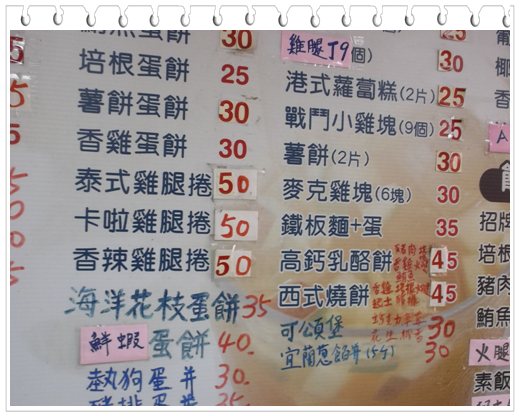 鮪魚蛋餅 30
培根蛋餅 25
薯餅蛋餅 30
香雞蛋餅 30
泰式雞腿捲 50
卡啦雞腿捲 50
香辣雞腿捲 50
海洋花枝蛋餅 35
鮮蝦蛋餅 40.
熱狗蛋并 30-
豬排蛋并
雞腿丁9個) 30
港式蘿蔔糕(2片) 25
戰鬥小雞塊(9個) 25
薯餅(2片) 30
麥克雞塊(6塊) 30
鐵板麵+蛋 35
高鈣乳酪餅 45
西式燒餅 45
可頌堡 30
宜蘭蔥餡餅 30
招牌
培根
豬肉
鮪魚
火腿
素飯